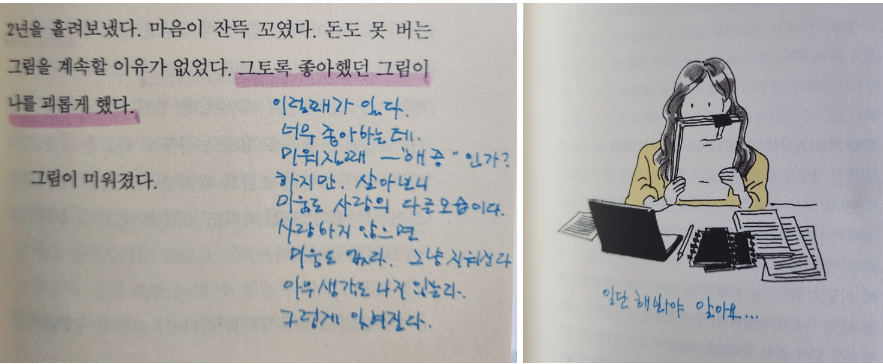 2년을 흘려보냈다. 마음이 잔뜩 꼬였다. 돈도 못 버는
그림을 계속할 이유가 없었다. 그토록 좋아했던 그림이
나를 괴롭게 했다.
그림이 미워졌다.
이럴때가 있다.
너무 좋아하는데.
미워질때 — "애증" 인가?
하지만. 살아보니
미움도 사랑의 다른모습이다.
사랑하지 않으면
미움도 없다. 그냥 잊혀진다
아무생각도 나지 않는다.
그렇게 잊혀질다.
일단 해봐야 알아요...